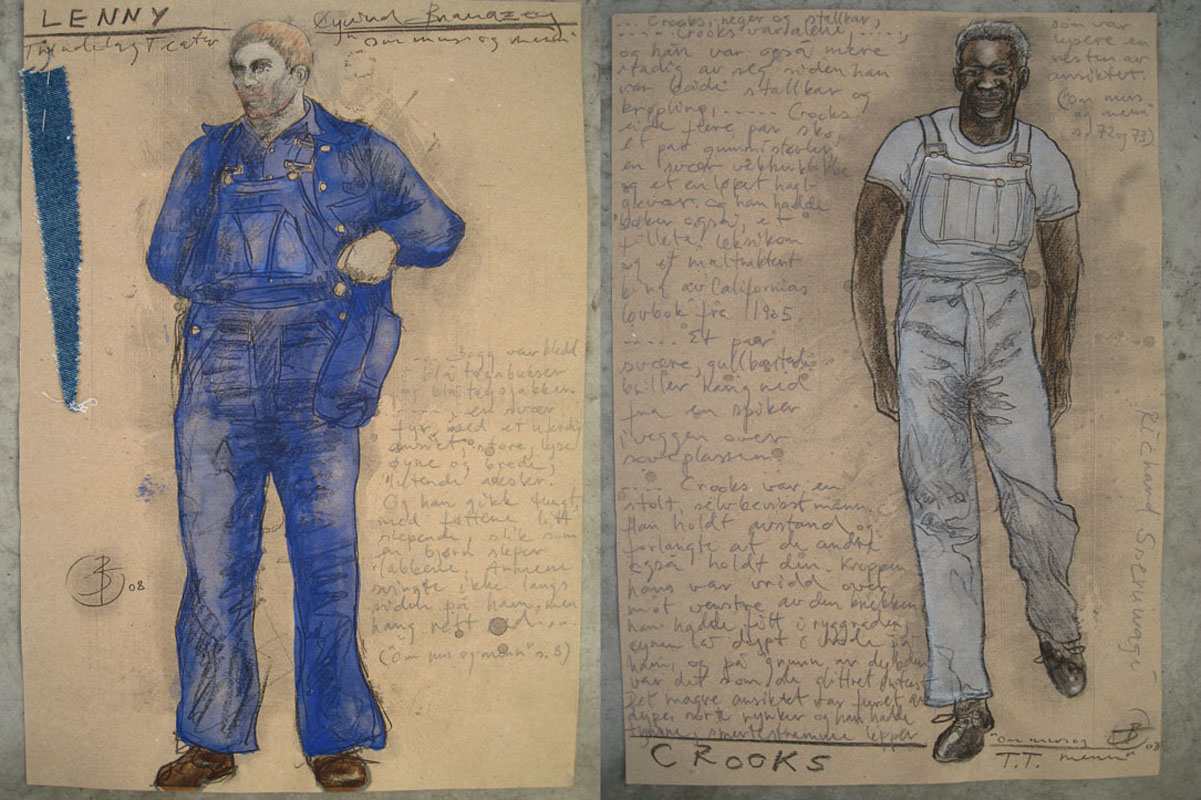 LENNY
Øyvind
Trøndelag Teater
"om mus og menn"
.... Begg var kledd
i blå
og blå
...., en svær
fyr, med et
ansikt, store, lyse
øyne og brede,
Og han gikk tungt,
med føttene litt
slepende, slik som
en bjørn sleper
labbene. Armene
svingte ikke langs
siden på ham, men
hang rett ned...
("Om mus og menn" s. 8)
08
.... Crooks, neger og stallkar,
.... Crooks var alene, ....,
og han var også mere
stadig av seg siden han
var både stallkar og
krøpling, ..... Crooks
eide flere par sko
et par gummistøvler,
en svær vekkerklokke
og et enløpet hagl-
gevær. Og han hadde
bøker også, et
fillete leksikon
og et
av Californias
lovbok fra 1905.
..... Et par
svære, gullbe
briller hang ned
fra en spiker
i veggen over
soveplassen.
.... Crooks var en
stolt, selvbevisst mann.
Han holdt avstand og
forlangte at de andre
også holdt den. Kroppen
hans var vridd over
mot venstre av den brekken
han hadde fått i ryggraden,
øynene lå dypt i hodet på
ham, og på grunn av dybden
var det som de glitret
Det magre ansiktet var furet av
dype, sorte rynker og han hadde
tynne, smertestramme lepper
som var
lysere enn
resten av
ansiktet.
(Om mus
og menn
s. 72 og 73)
Richard
CROOKS
"Om mus og
menn"
T.T.
08